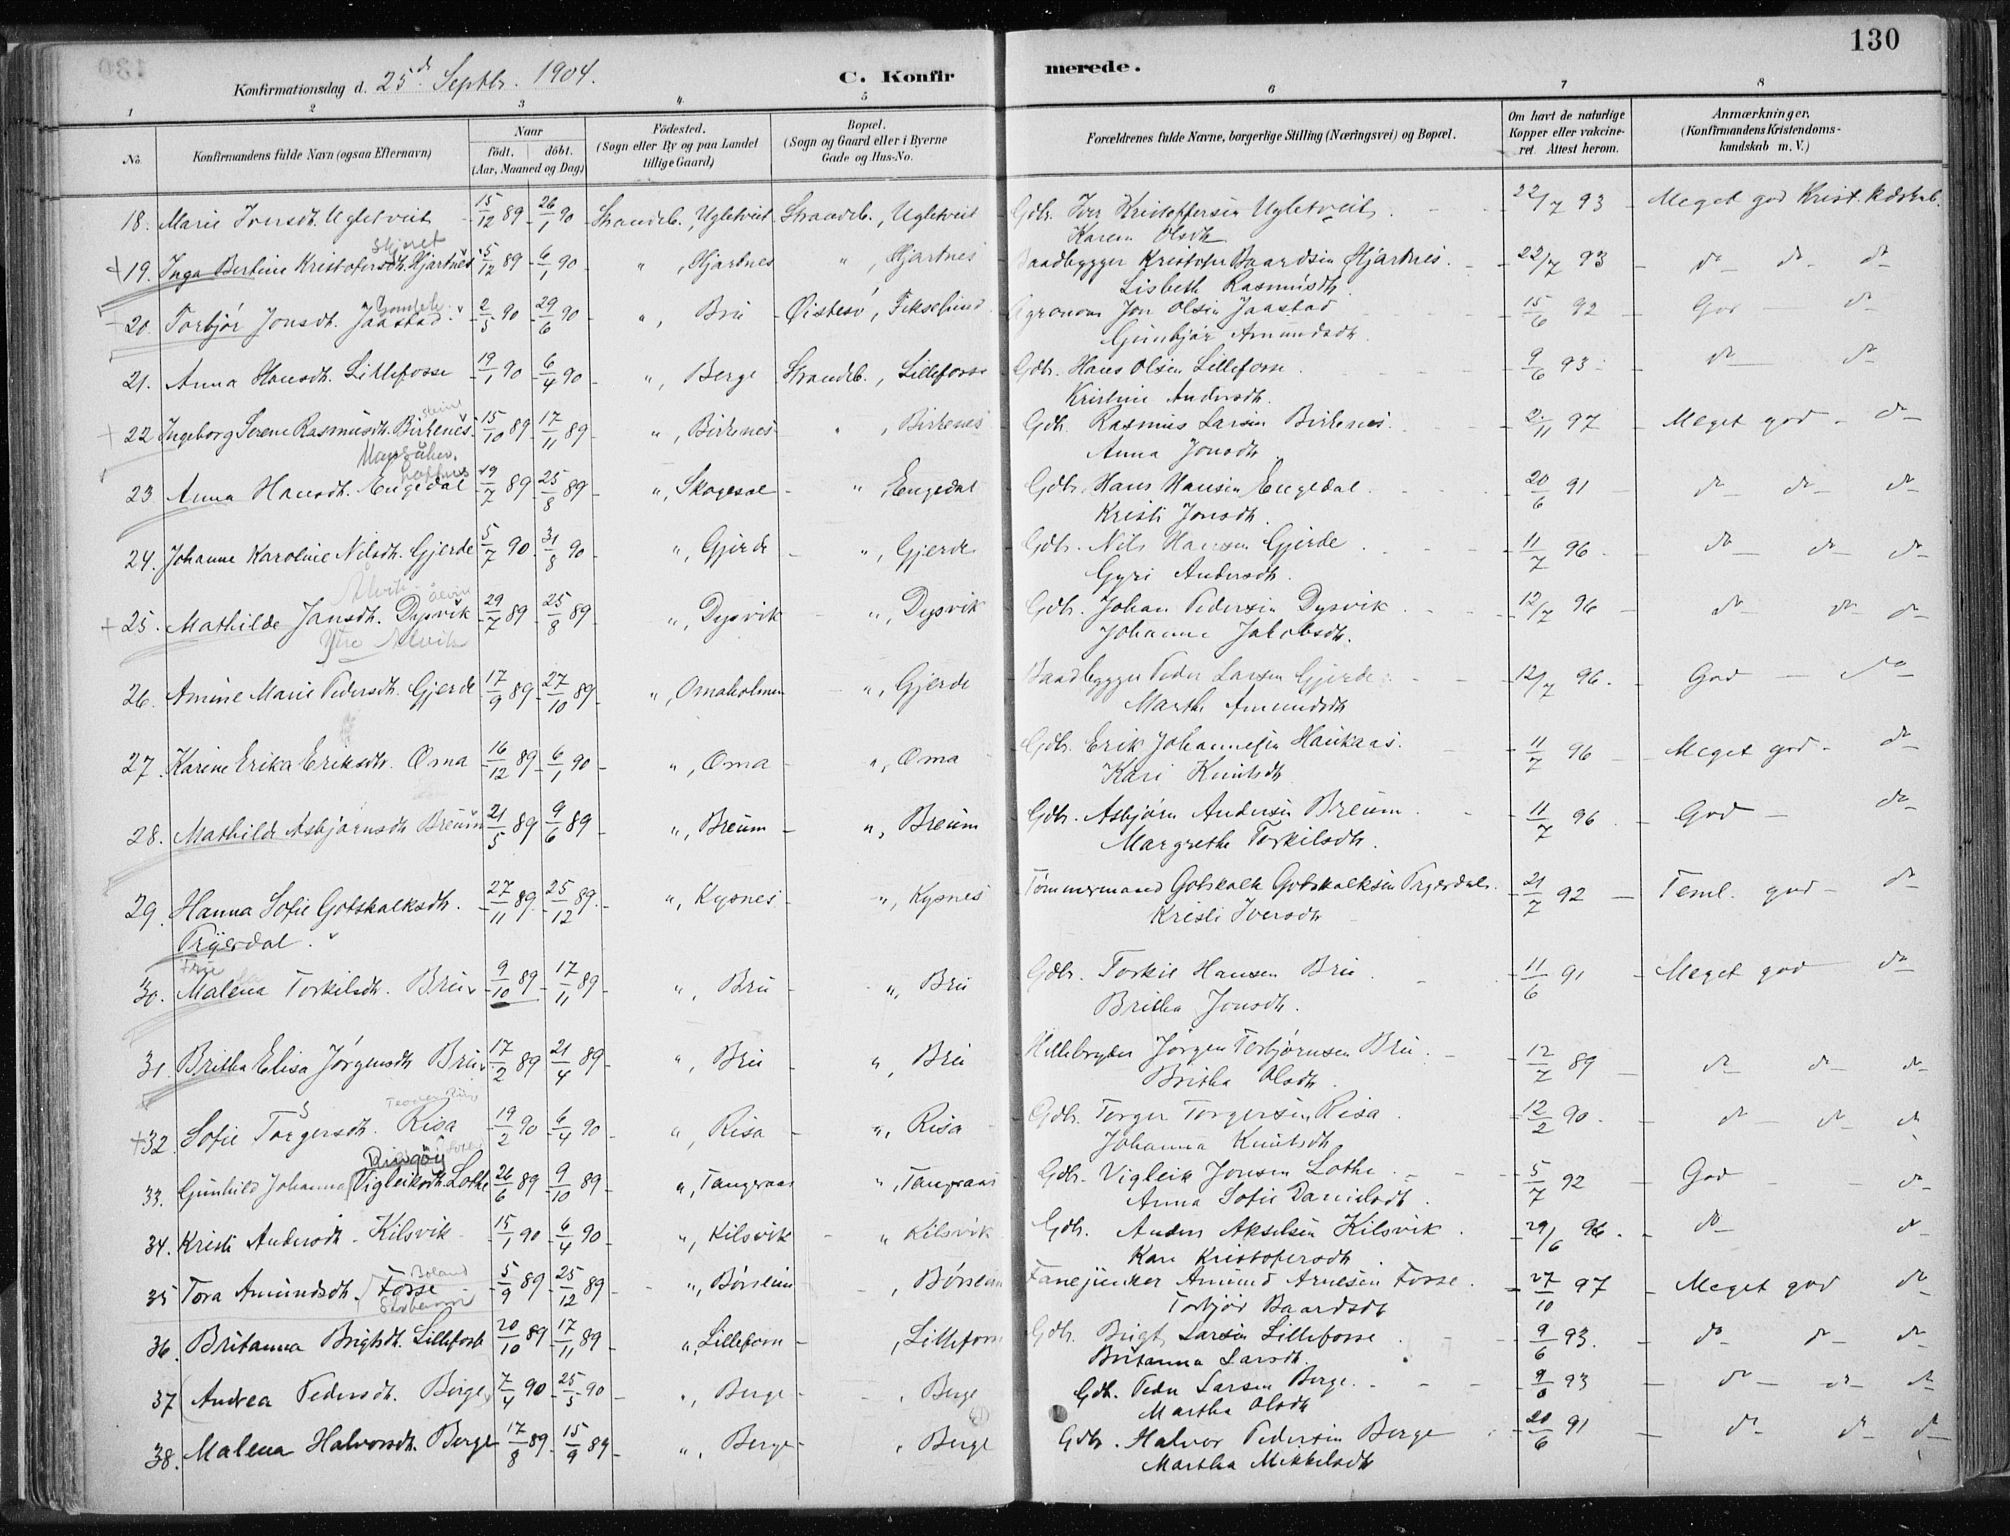 130
Konfirmationsdag d. 25de Septbr. 1904.
C. Konfir merede.
1 2 3 4 5 6 7 8
No.
Konfirmandens fulde Navn (ogsaa Efternavn)
Naar
født. døbt.
(Aar, Maaned og Dag)
Fødested.
(Sogn eller By og paa Landet
tillige Gaard)
Bopæl.
(Sogn og Gaard eller i Byerne
Gade og Hus-No.
Forældrenes fulde Navne, borgerlige Stilling (Næringsvei) og Bopæl.
Om havt de naturlige
Kopper eller vakcine-
ret. Attest herom.
Anmærkninger.
(Konfirmandens Kristendoms-
kundskab m. V.)
18. Marie Iversdt. Ugletveit 15/12 89 26/1 90 Strandeb., Ugletveit Strandeb., Ugletveit Gdbr. Iver Kristoffersen Ugletveit 22/7 93 Meget god Krist. kdskab.
Karen Olsdt.
19. Inga Bertine Kristofersdt. Hjartnes 5/12 89 6/1 90 ", Hjartnes ", Hjartnes Baadbygger Kristofer Baardsen Hjartnes. 22/7 93 do do do
Lisbeth Rasmusdt.
20. Torbjør Jonsdt. Jaastad 2/5 90 29/6 90 ", Bru Øistesø, Fiksesund Agronom Jon Olsen Jaastad 15/6 92 God do
Gunbjør Amundsdt.
21. Anna Hansdt. Lillefosse 19/1 90 6/4 90 ", Berge Strandeb., Lillefosse Gdbr. Hans Olsen Lillefosse 9/6 93 do do
Kristine Andersdt.
22 Ingeborg Serene Rasmusdt. Birkenes 15/10 89 17/11 89 ", Birkenes ", Birkenes Gdbr. Rasmus Larsen Birkenes. 2/11 97 Meget god do
Anna Jonsdt.
23. Anna Hansdt. Engedal 19/7 89 25/8 89 ", Skogesal ", Engedal Gdbr. Hans Hansen Engedal 20/6 91 do do do
Kristi Jonsdt.
24. Johanne Karoline Nilsdt. Gjerde 5/7 90 31/8 90 ", Gjerde ", Gjerde Gdbr. Nils Hansen Gjerde 11/7 96 do do do
Gyri Andersdt.
25. Mathilde Jansdt. Dysvik 29/7 89 25/8 89 ", Dysvik ", Dysvik Gdbr. Johan Pedersen Dysvik 12/7 96 do do do
Ytre Alvik
Johanne Jakobsdt.
26. Amine Marie Pedersdt. Gjerde 17/9 89 27/10 89 ", Omaholmen ", Gjerde Baadbygger Peder Larsen Gjerde 12/7 96. God do
Marthe Amundsdt
27. Karine Erika Eriksdt. Oma 16/12 89 6/1 90 ", Oma ", Oma Gdbr. Erik Johannesen Haukaas. 11/7 96 Meget god do
Kari Knutsdt
28. Mathilde Asbjørnsdt Breum 21/5 89 9/6 89 ", Breum ", Breum Gdbr. Asbjørn Andersen Breum 11/7 96 God do
Margrethe Torkilsdt.
29. Hanna Sofie Gotskalksdt. 27/11 89 25/12 89 ", Kysnes ", Kysnes Tømmermand Gotskalk Gotskalksen Prjesdal. 21/7 92 Teml. god do
Kristi Iversdt
30. Malena Torkilsdt. Bru 9/10 89 17/11 89 ", Bru ", Bru Gdbr. Torkil Hansen Bru 11/6 91 Meget god do
Britha Jonsdt.
31. Britha Elisa Jørgensdt Bru 17/2 89 21/4 89 ", Bru ", Bru Hellebryder Jørgen Torbjørnsen Bru. 12/7 89 do do do
Britha Olsdt.
32. Sofie Torgersdt. Risa 19/2 90 6/4 90 ", Risa ", Risa Gdbr. Torger Torgersen Risa 12/2 90. do do do
Johanna Knutsdt
Ringøy
33. Gunhild Johanna Vigleiksdt. Lothe 26/6 89 9/10 89 ", Tangeraas ", Tangeraas Gdbr. Vigleik Jonsen Lothe 5/7 92 God do
Anna Sofie Danielsdt
34. Kristi Andersdt. Kilsvik 15/1 90 6/4 90 ", Kilsvik ", Kilsvik Gdbr. Anders Akselsen Kilsvik 29/6 96. do do
Kari Kristofersdt
35 Tora Amundsdt. Fosse 5/9 89 25/12 89 ", Børsheim , Børsheim Fanejunker Amund Arnesen Fosse 27/10 97 Meget god do
Boland
Torbjør Baardsdt
36. Britanna Brigtsdt. Lillefosse 20/10 89 17/11 89 ", Lillefosse , Lillefosse Gdbr. Brigt Larsen Lillefosse 9/6 93. do do do
Britanna Larsdt.
37 Andrea Pedersdt. Berge 7/4 90 25/5 90 ", Berge , Berge Gdbr. Peder Larsen Berge 9/6 93 do do do
Martha Olsdt
38. Malena Halvorsdt. Berge 17/8 89 15/9 89 ", Berge , Berge Gdbr. Halvor Pedersen Berge 20/6 91 do do do
Martha Mikkelsdt